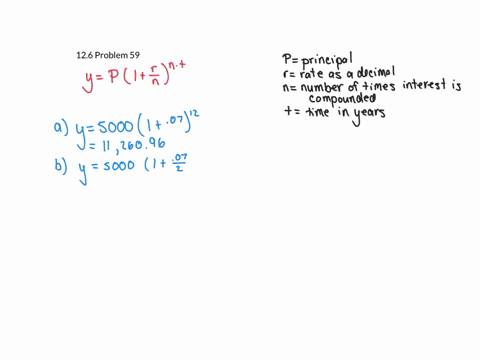 12.6 Problem 59
y = P (1 + r/n)^n·t
a) y = 5000 (1 + .07)^12
y = 11,260.96
b) y = 5000 (1 + .07/2
P = principal
r = rate as a decimal
n = number of times interest is
compounded
t = time in years